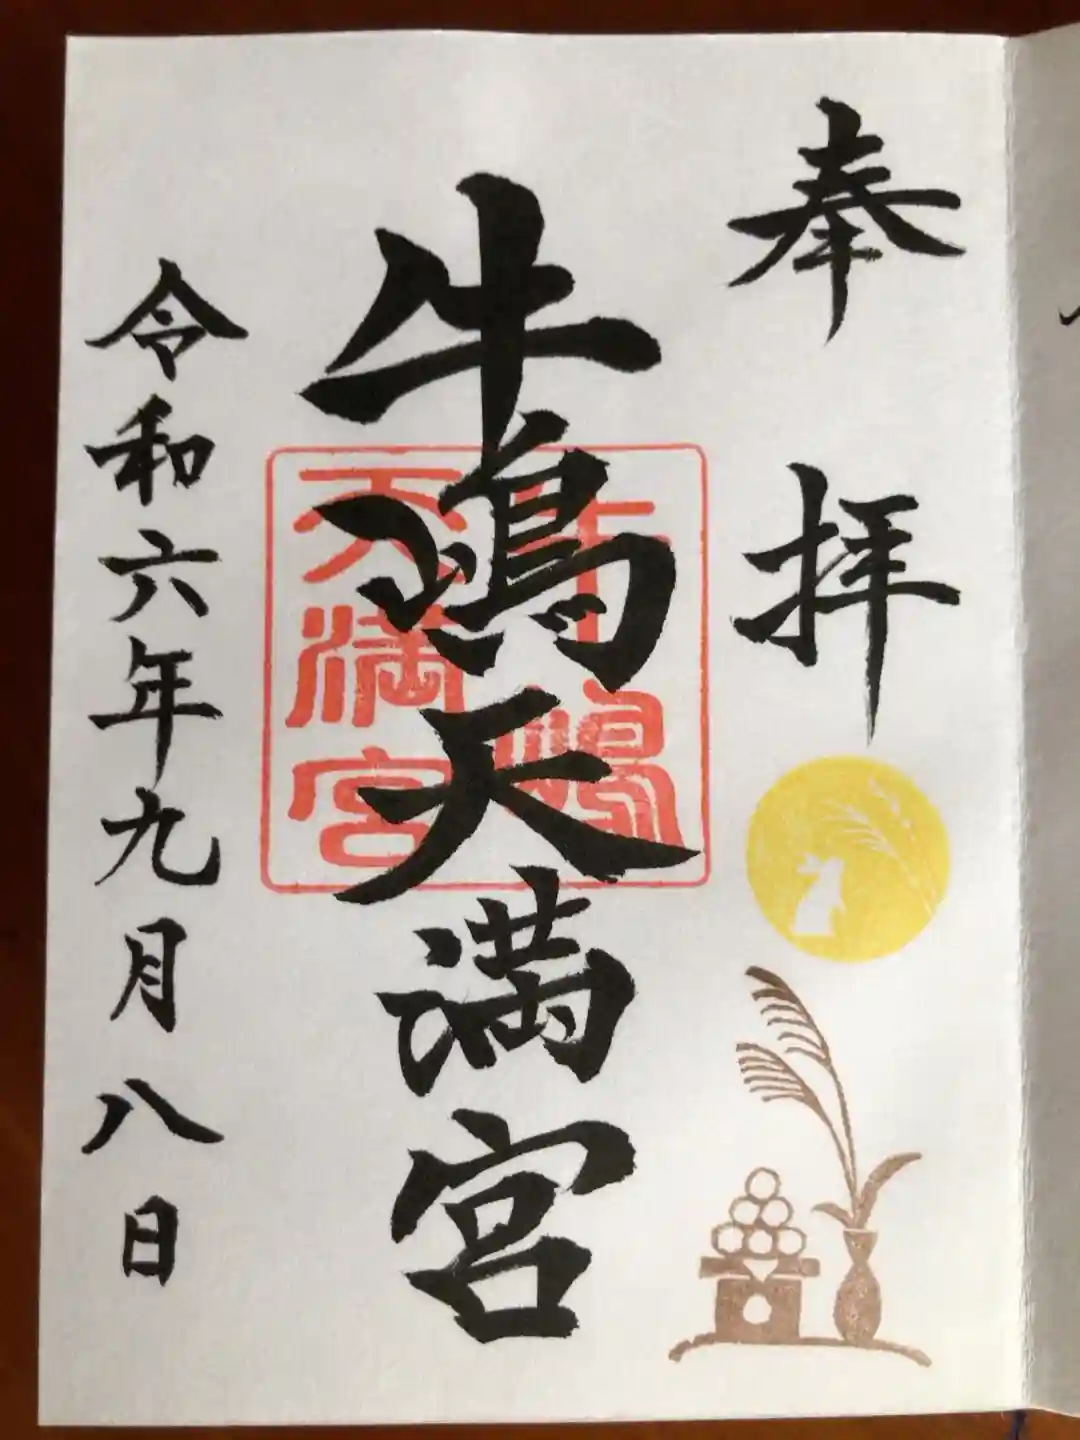 奉拝
牛嶋天満宮
牛嶋
天満宮
令和六年九月八日